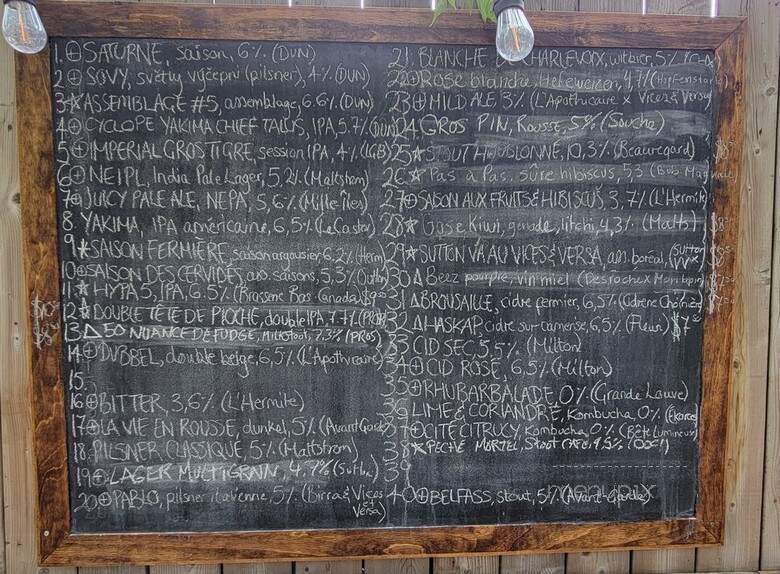 1. ⊕ SATURNE, saison, 6% (DUN)
2 ⊕ SOVY, světlý výčepní (pilsner), 4% (DUN)
3 ★ ASSEMBLAGE #5, assemblage, 6.6% (DUN)
4 ⊕ CYCLOPE YAKIMA CHIEF TALUS, IPA, 5.7% (DUN)
5 ⊕ IMPERIAL GROS TIGRE, session IPA, 4% (LGB)
6 ⊕ NEIPL, India Pale Lager, 5,2% (Maltstrom)
7 ⊕ JUICY PALE ALE, NEPA, 5,6% (Mille-Îles)
8 YAKIMA, IPA américaine, 6,5% (LeCastor)
9 ★ SAISON FERMIÈRE, saison argousier, 6.2% (Herm)
10 ⊕ SAISON DES CERVIDÉS, saisons, 5,3%
11 ★ HYPA 5, IPA, 6.5% (Brasserie Bas Canada)
12 ★ DOUBLE TÊTE DE PIOCHE, double IPA, 7.7% (PROS)
13 Δ 50 NUANCE DE FUDGE, MilkStout, 7.3% (PROS)
14 ⊕ DUBBEL, double belge, 6,5% (L'Apothicaire)
15.
16 ⊕ BITTER, 3,6% (L'Hermite)
17 ⊕ LA VIE EN ROUSSE, dunkel, 5% (Avant Garde)
18. PILSNER CLASSIQUE, 5% (Maltstrom)
19 ⊕ LAGER MULTIGRAIN, 4,7% (Sutton)
20 ⊕ PABLO, pilsner italienne, 5% (Birra & Vices et Versa)
21. BLANCHE DE CHARLEVOIX, witbier, 5%
22 ⊕ Rose blanche, Hefeweizen, 4,7%
23 ⊕ MILD ALE, 3% (L'Apothicaire x Vices & Versa)
24 GROS PIN, Rousse, 5% (Souche)
25 ★ STOUT HOUBLONNÉ, 10,3% (Beauregard)
26 ★ Pas à Pas, sûre hibiscus, 5,3
27 ⊕ SABON AUX FRUITS & HIBISCUS 3,7% (L'Hermite)
28 ★ Gose Kiwi, litchi, 4,3% (Malts)
29 ★ SUTTON VA AU VICES & VERSA, am. boréal, (Sutton
30 Δ Beez pourpre, vin miel
31 Δ BROUSAILLE, cidre fermier, 6,5%
32 Δ HASKAP cidre sur-camerise, 6,5% (Fleuri) $7
33 CID SEC, 5,5% (Milton)
34 ⊕ CID ROSÉ, 6.5% (Milton)
35 ⊕ RHUBARBALADE, 0% (Grande Louve)
36 LIME & CORIANDRE, Kombucha, 0%
37 ⊕ CITÉ CITRUCY, Kombucha, 0% (Bête Lumineuse)
38 ★ PÉCHÉ MORTEL, Stout CAFÉ, 9,5% (DDC)
39
40 ⊕ BELFASS, stout, 5% (Avant-Garde)
menupix